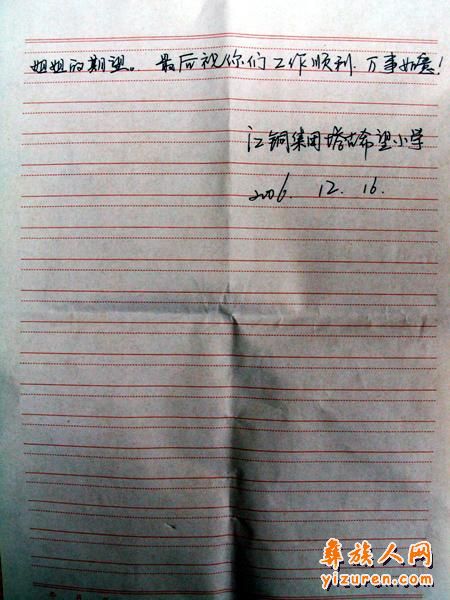 姐姐的期望。最后祝你们工作顺利 万事如意!
江铜集团塔古希望小学
2006. 12. 16.
彝族人网
yizuren.com